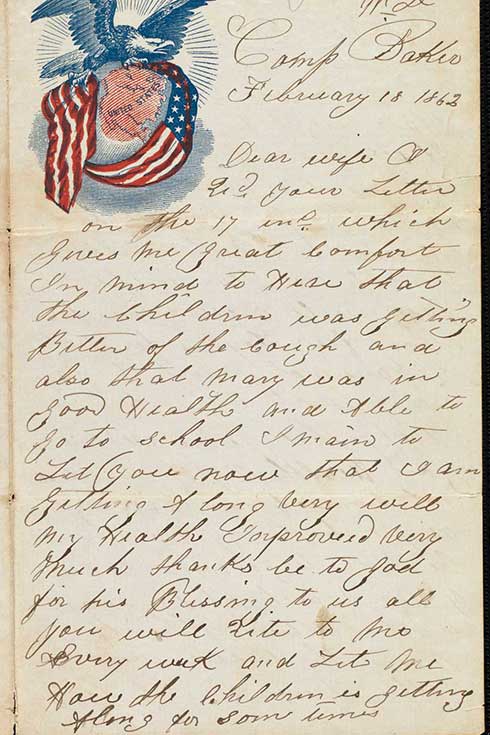 UNITED STATES
Camp Baker
February 18 1862
Dear wife I
Rcd your Letter
on the 17 ins which
gives me great Comfort
In mind to Here that
the Children was getting
Better of the Cough and
also that Mary was in
good Health and Able to
go to school I main to
Let you now that I am
getting Along very well
My Health Improved very
Much thanks be to god
for his Blessing to us all
you will Rite to Me
Every week and Let Me
How the Children is getting
Along for som times